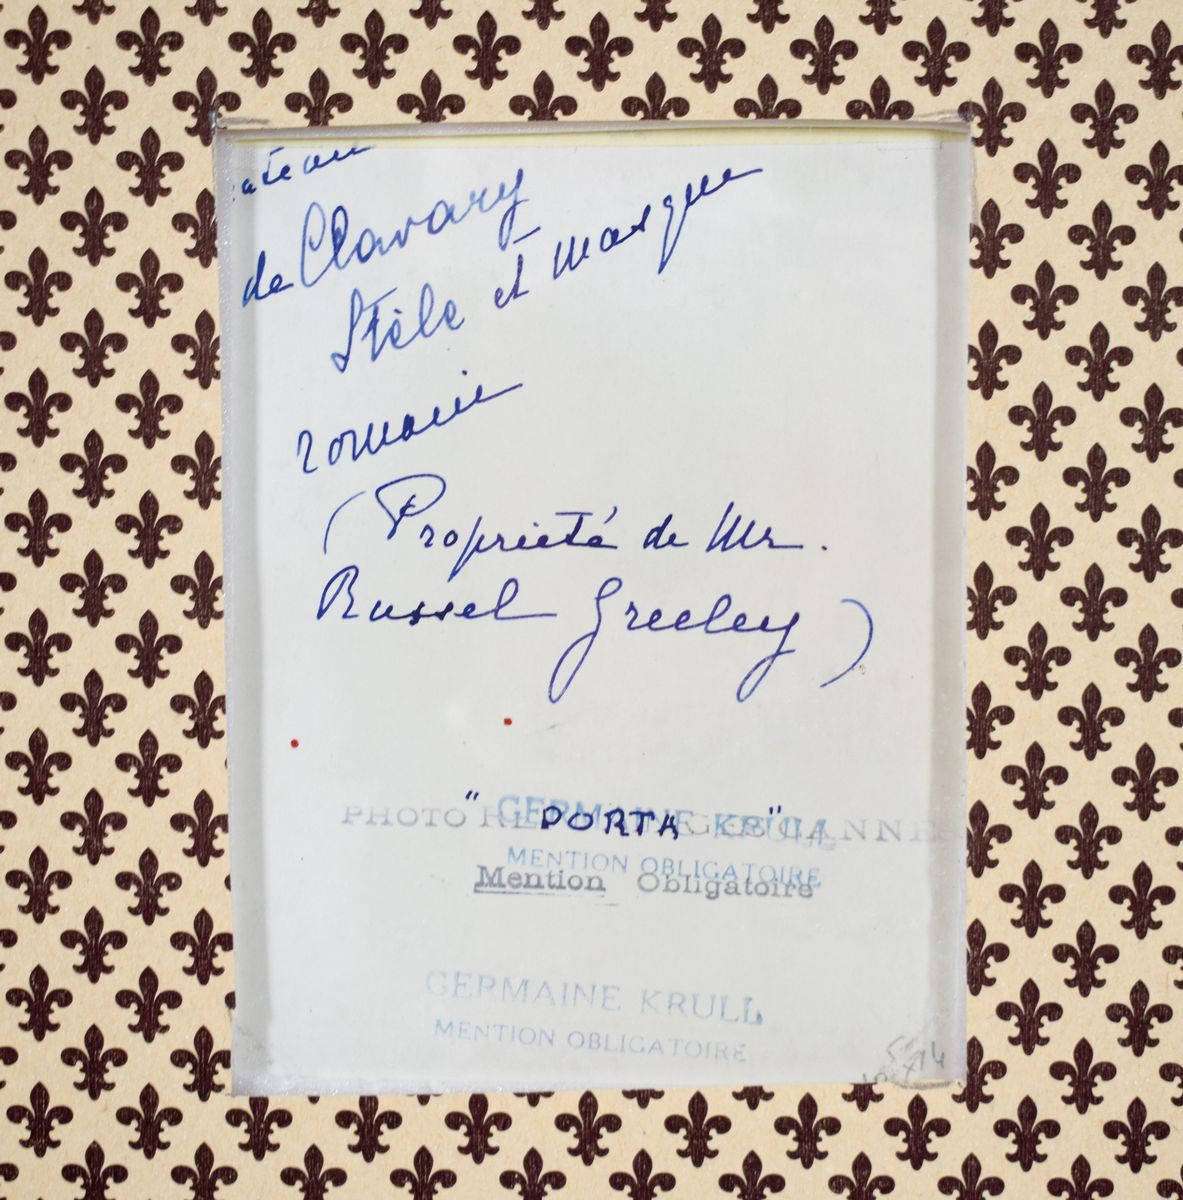 de Clavary
Stèle et masque
romain
(Propriété de Mr.
Russel Greeley)
GERMAINE KRULL
PHOTO "PORTA" CANNES
MENTION OBLIGATOIRE
Mention Obligatoire
GERMAINE KRULL
MENTION OBLIGATOIRE